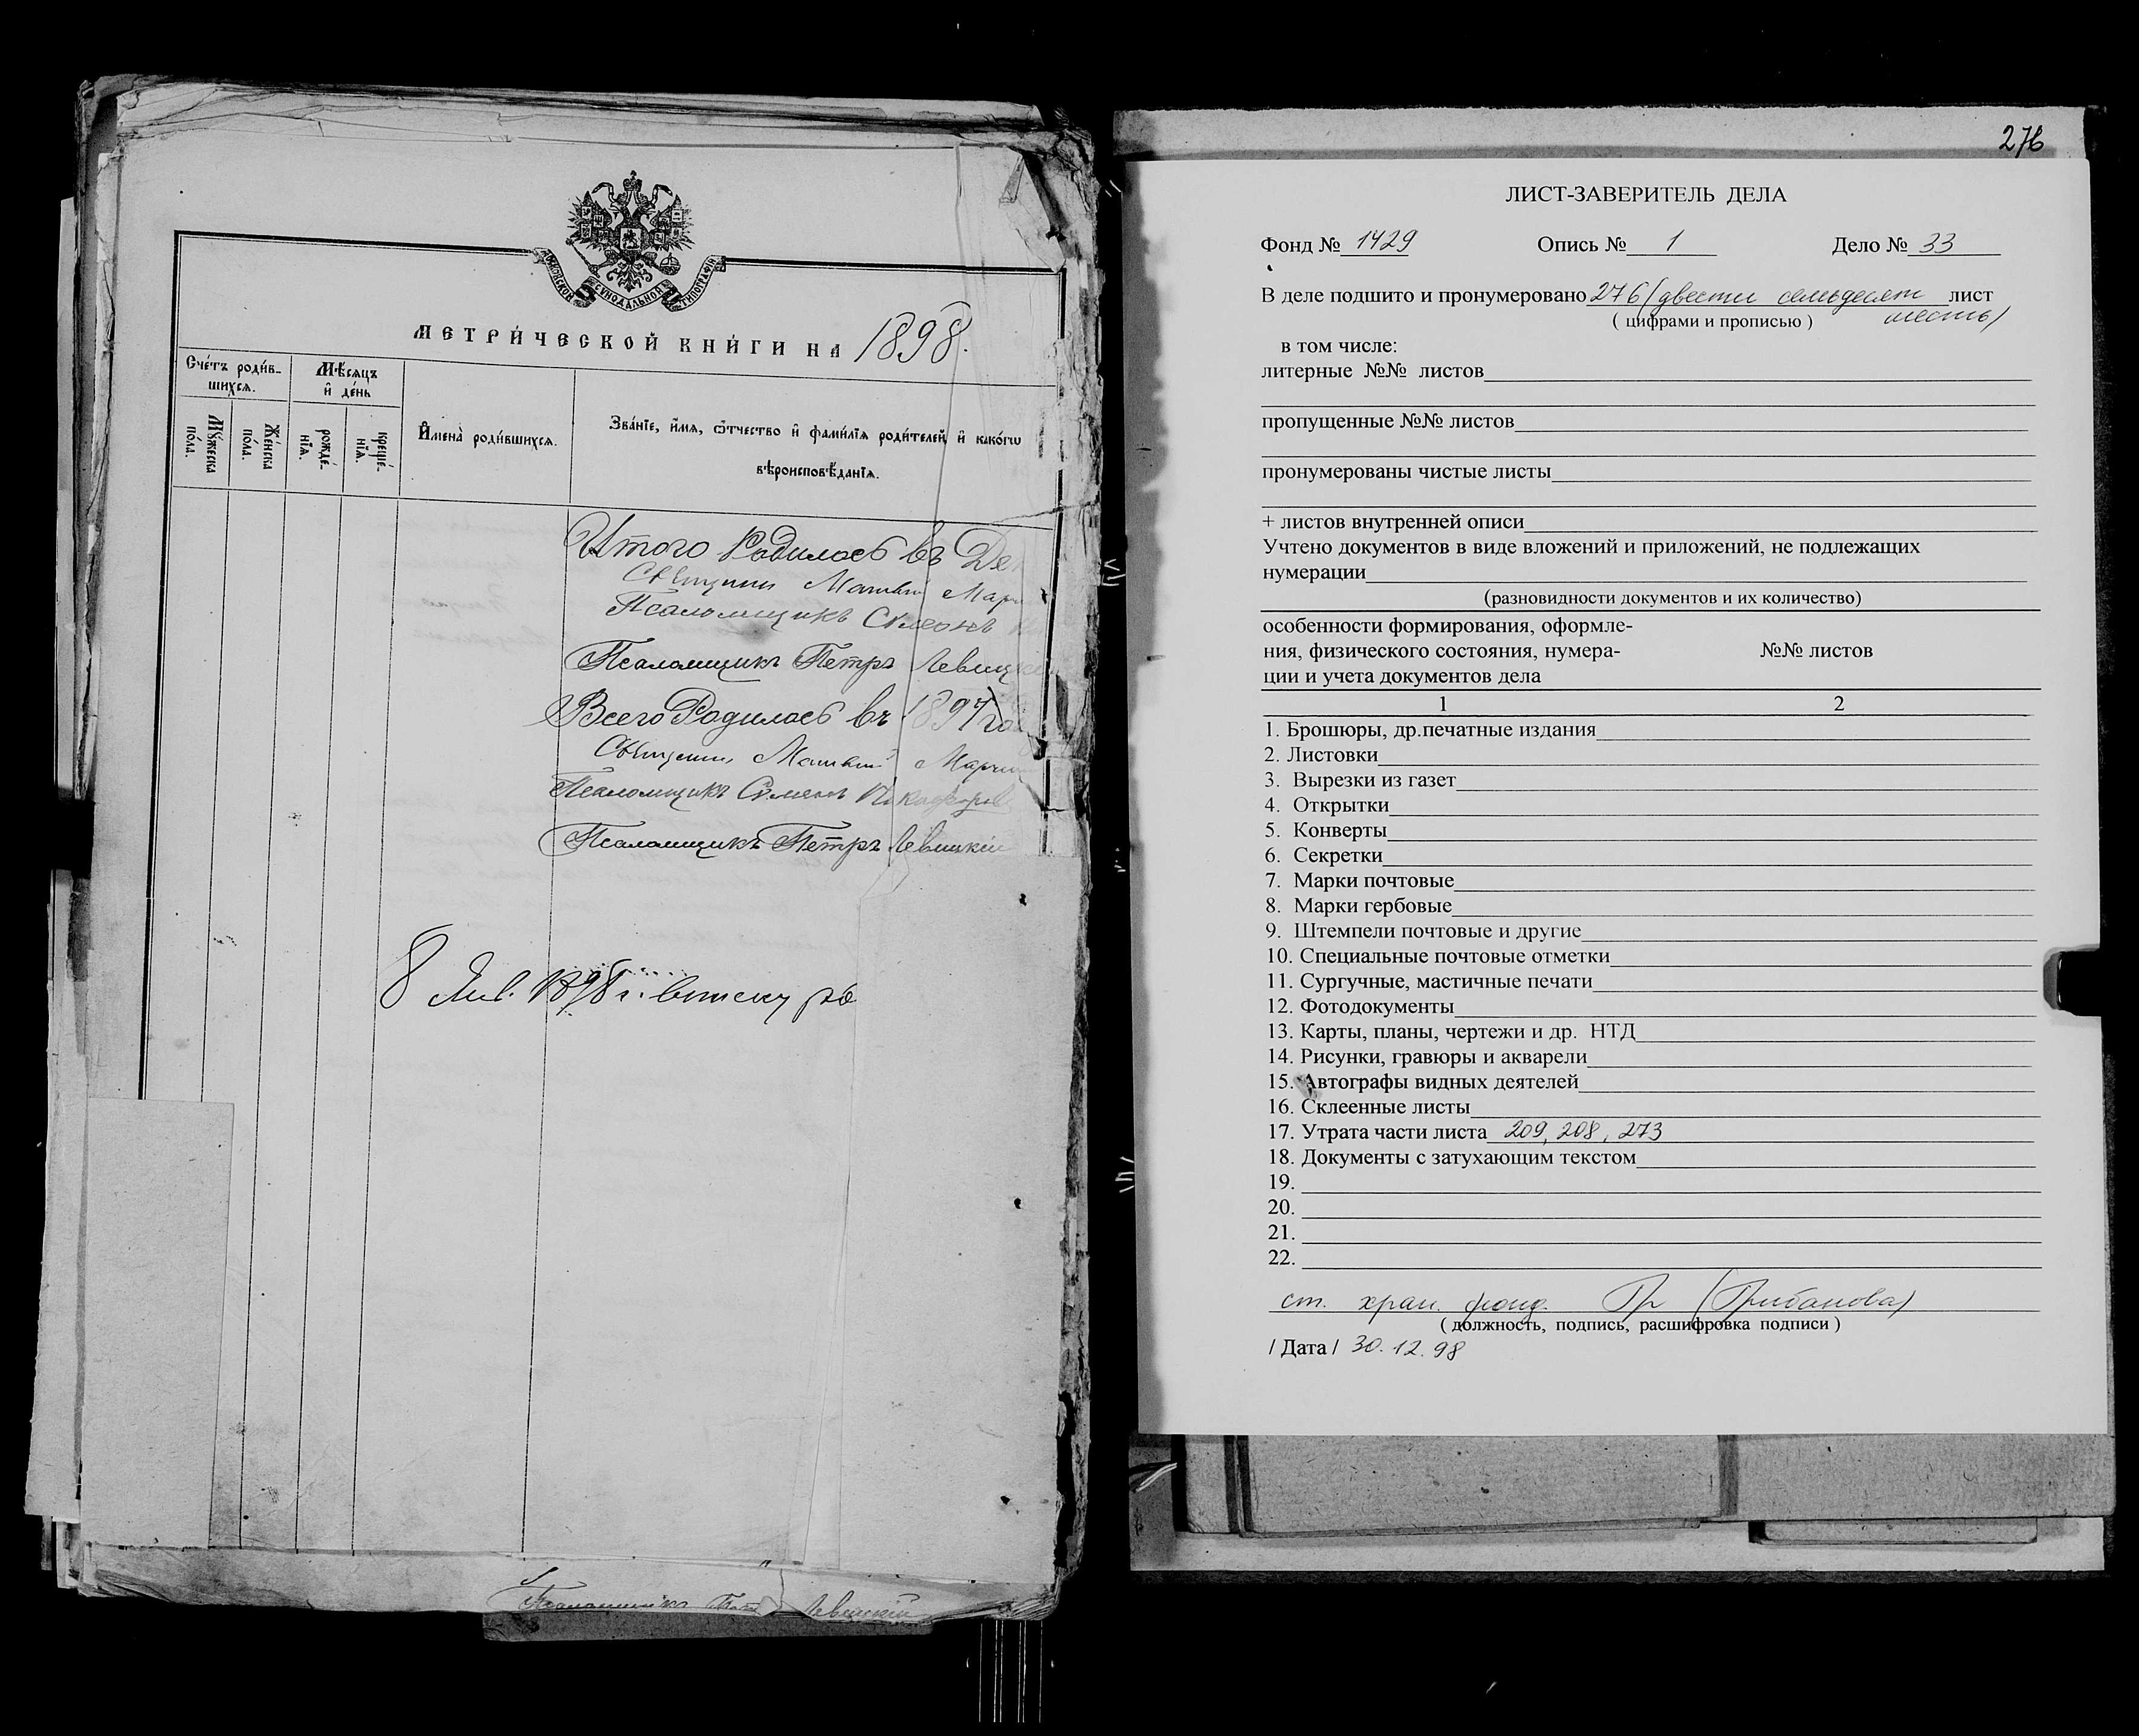 МОСКОВСКОЙ СѴНОДАЛЬНОЙ ТИПОГРАФІИ
МЕТРИ́ЧЕСКОЙ КНИ́ГИ НА 1898.
Сче́тъ роди́в-
шихсѧ.
Мѣ́сѧцъ
и҆ де́нь
Мꙋ́жеска
по́ла.
Же́нска
по́ла.
рожде́-
нїѧ.
креще́-
нїѧ.
И҆мена̀ роди́вшихсѧ.
Зва́нїе, и҆́мѧ, ѻ҆́тчество и҆ фами́лїѧ роди́телей, и҆ како́гѡ
вѣроисповѣ́данїѧ.
Итого Родилось въ Де
Матвій Мар
Псаломщикъ Сѵмеонъ
Псаломщикъ Петръ Левицкій
Всего Родилось въ 1897 го
Матвій
Псаломщикъ Сѵмеонъ Никифоров
Псаломщикъ Петръ Левицкій
8 Янв. 1898 г.
Псаломщикъ Левицкій
276
ЛИСТ-ЗАВЕРИТЕЛЬ ДЕЛА
Фонд № 1429 Опись № 1 Дело № 33
В деле подшито и пронумеровано 276 (двести семьдесят лист
( цифрами и прописью ) шесть)
в том числе:
литерные №№ листов
пропущенные №№ листов
пронумерованы чистые листы
+ листов внутренней описи
Учтено документов в виде вложений и приложений, не подлежащих
нумерации
(разновидности документов и их количество)
особенности формирования, оформле-
ния, физического состояния, нумера- №№ листов
ции и учета документов дела
1 2
1. Брошюры, др.печатные издания
2. Листовки
3. Вырезки из газет
4. Открытки
5. Конверты
6. Секретки
7. Марки почтовые
8. Марки гербовые
9. Штемпели почтовые и другие
10. Специальные почтовые отметки
11. Сургучные, мастичные печати
12. Фотодокументы
13. Карты, планы, чертежи и др. НТД
14. Рисунки, гравюры и акварели
15. Автографы видных деятелей
16. Склеенные листы
17. Утрата части листа 209, 208, 273
18. Документы с затухающим текстом
19.
20.
21.
22.
ст. хран. фонд. Гр (Грибанова)
( должность, подпись, расшифровка подписи )
/ Дата / 30.12.98